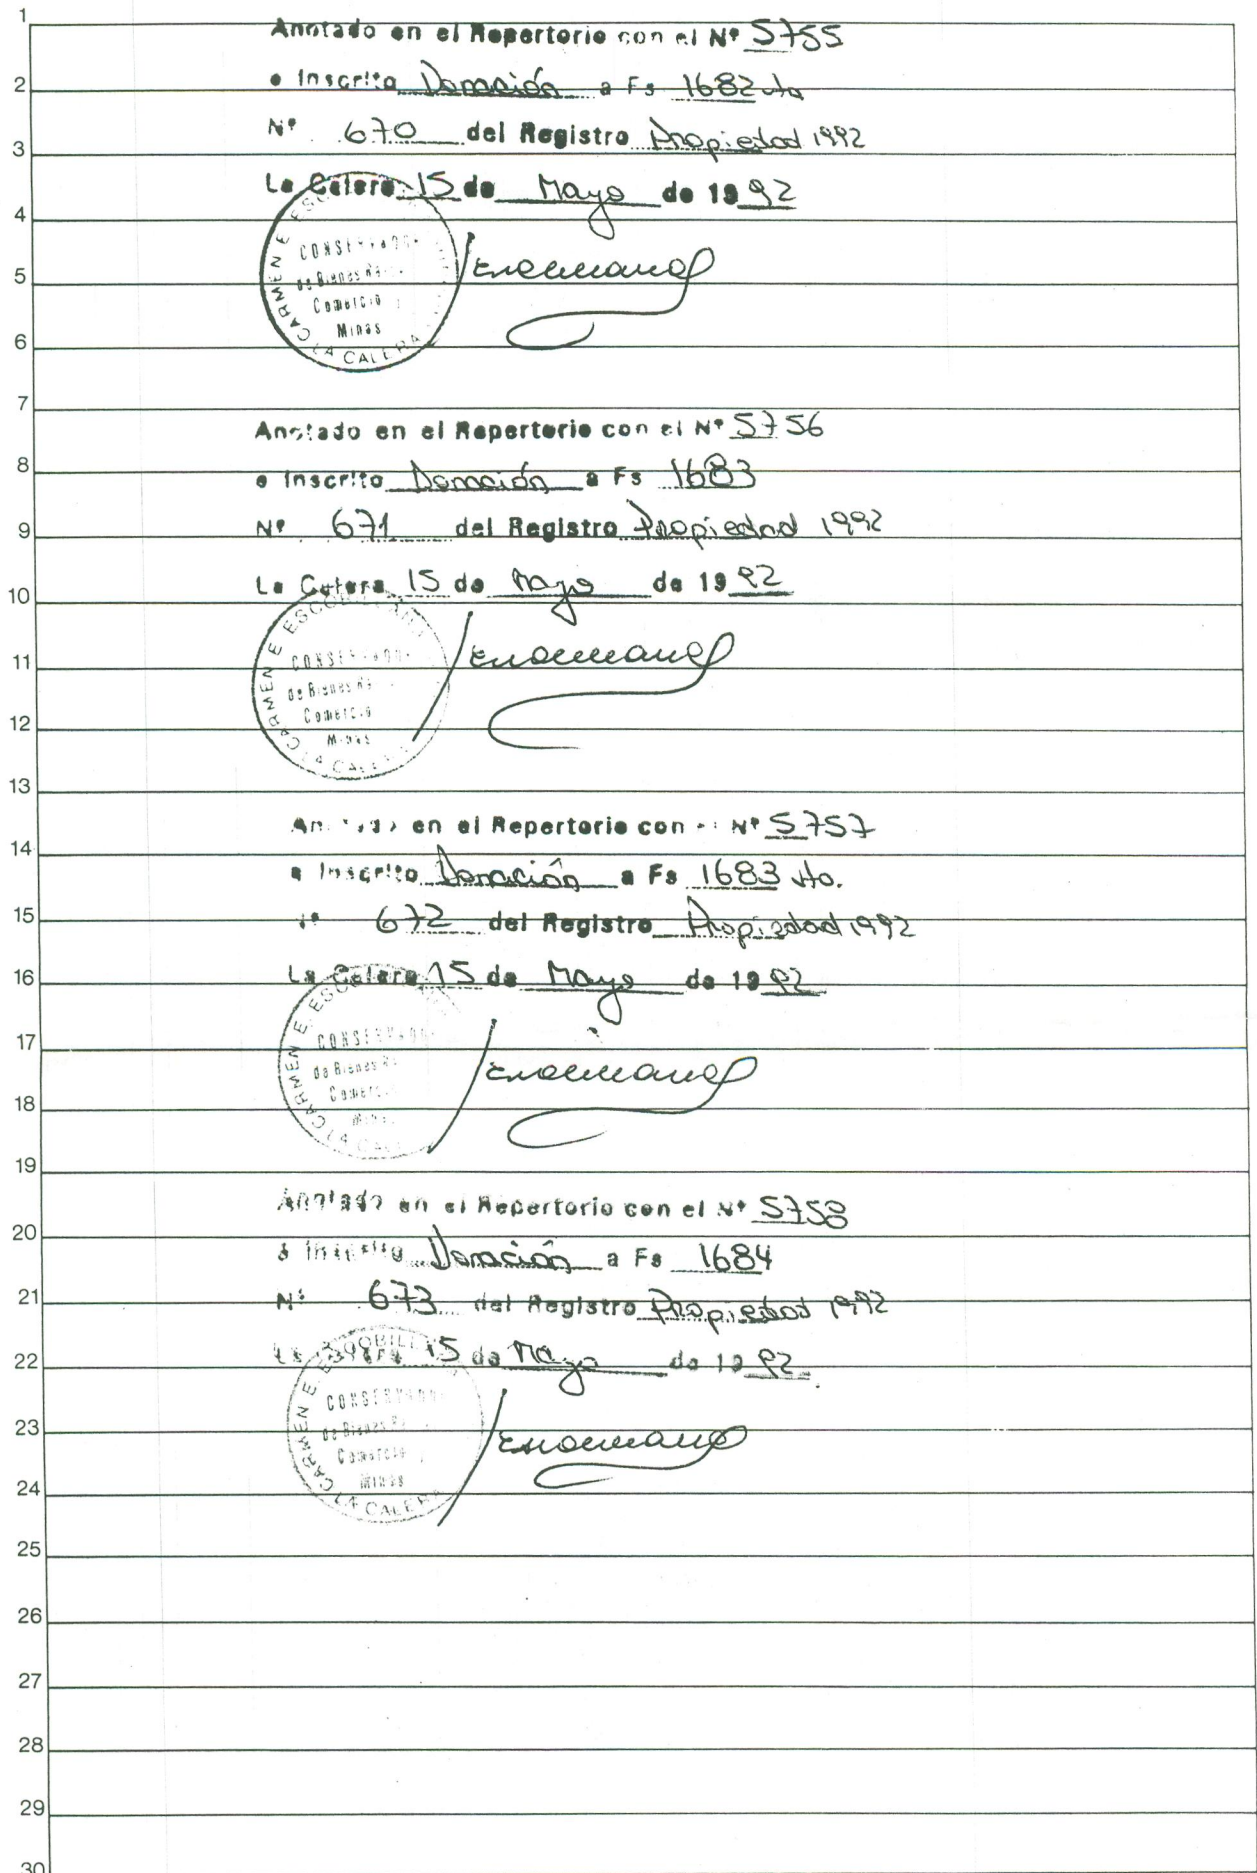 1
Anotado en el Repertorio con el Nº 5755
2
e Inscrito Donación a Fs 1682 vta
Nº 670 del Registro Propiedad 1992
3
La Calera 15 de Mayo de 1992
4
CARMEN E.
CONSERVADOR
5
de Bienes
Comercio
Minas
6
LA CALERA
7
Anotado en el Repertorio con el Nº 5756
8
e Inscrito Donación a Fs 1683
9
Nº 671 del Registro Propiedad 1992
La Calera 15 de Mayo de 1992
10
CARMEN E.
11
CONSERVADOR
de Bienes
Comercio
12
Minas
LA CALERA
13
Anotado en el Repertorio con el Nº 5757
14
e Inscrito Donación a Fs 1683 vto.
15
Nº 672 del Registro Propiedad 1992
16
La Calera 15 de Mayo de 1992
CARMEN E.
17
CONSERVADOR
de Bienes
Comercio
18
Minas
LA CALERA
19
Anotado en el Repertorio con el Nº 5758
20
e Inscrito Donación a Fs 1684
21
Nº 673 del Registro Propiedad 1992
22
La Calera 15 de Mayo de 1992
CARMEN E.
CONSERVADOR
23
de Bienes
Comercio
Minas
24
LA CALERA
25
26
27
28
29
30